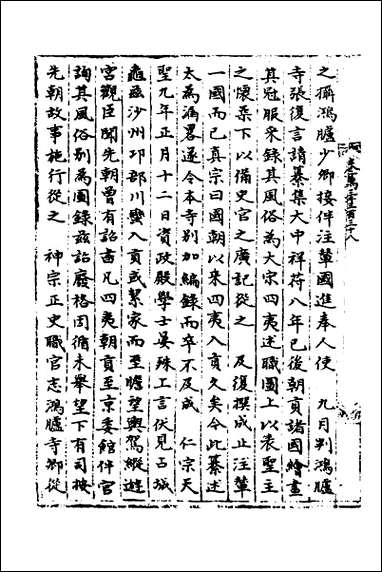 之攝鴻臚少卿接伴注輦國進奉人使　九月判鴻臚
寺張復言請纂集大中祥符八年已後朝貢諸國繪畫
其冠服采錄其風俗為大宋四夷述職圖上以表聖主
之懷柔下以備史官之廣記從之　及復撰成止注輦
一國而已真宗曰國朝以來四夷入貢久矣今此纂述
太為漏畧遂令本寺別加編錄而卒不及成　仁宗天
聖九年正月十二日資政殿學士晏殊上言伏見占城
龜茲沙州邛部川蠻入貢或絜家而至瞻望輿駕縱遊
宮觀臣聞先朝曾有詔書凡四夷朝貢至京委館伴官
詢其風俗別為圖錄茲詔廢格因循未舉望下有司按
先朝故事施行從之　神宗正史職官志鴻臚寺卿從